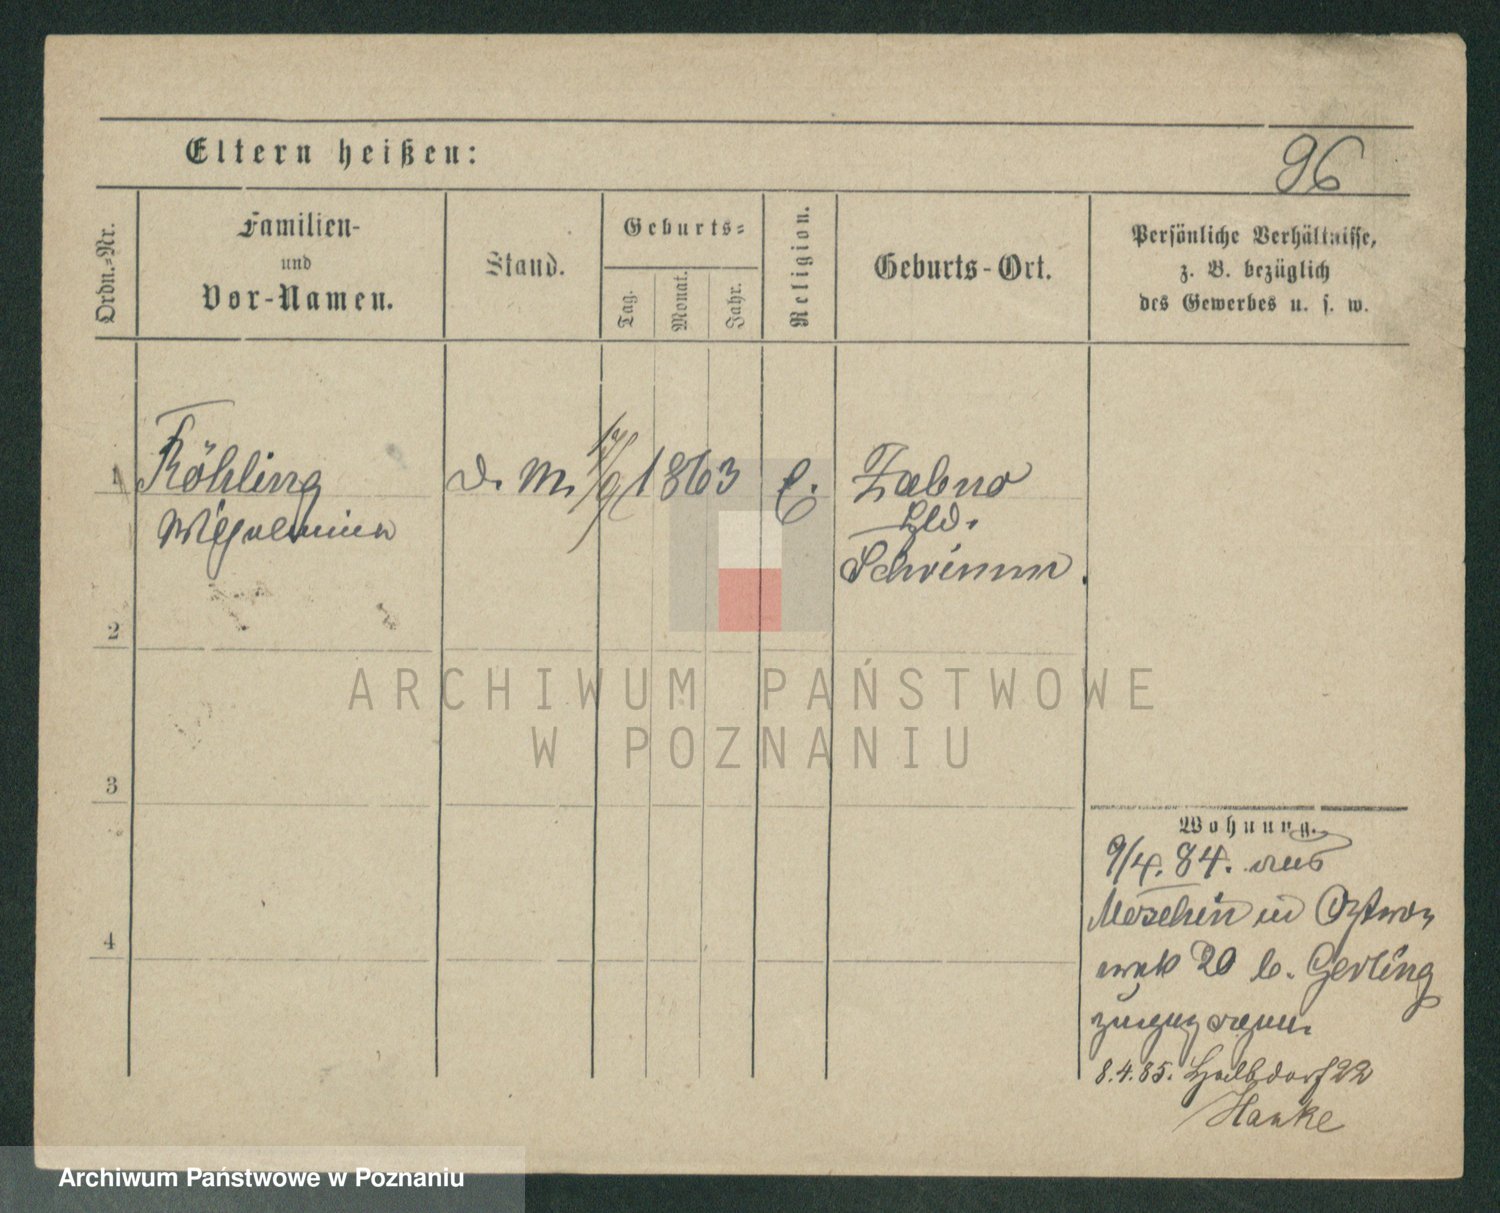 Eltern heißen:
96
Ordn.-Nr.
Familien-
und
Vor-Namen.
Stand.
Geburts-
Tag.
Monat.
Jahr.
Religion.
Geburts-Ort.
Persönliche Verhältnisse,
z. B. bezüglich
des Gewerbes u. s. w.
1
Röhling
Wilhelmine
d. M.
17/9 1863
E.
Zabno
Hld.
Schrimm.
2
3
4
Wohnung.
9/4. 84. aus
Moschin in
20 b. Gerling
zugezogen.
8.4.85. Halbdorf 22
Hanke
ARCHIWUM PAŃSTWOWE
W POZNANIU
Archiwum Państwowe w Poznaniu